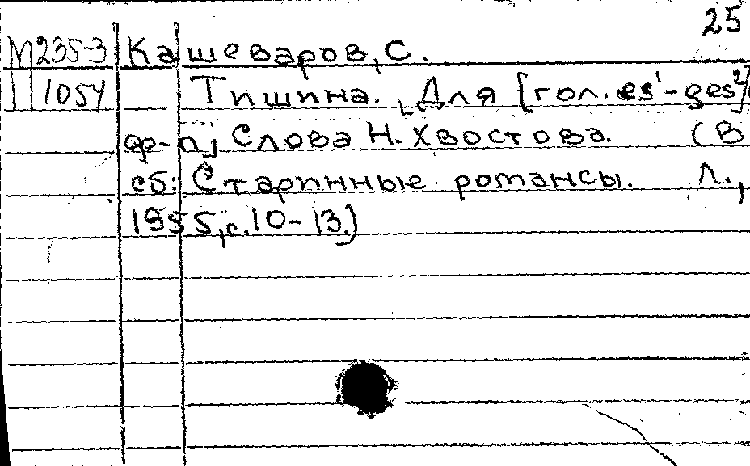 25
М235-3 Кашеваров, С.
1054 Тишина. Для [гол. es¹-ges²]
ф-п, Слова Н. Хвостова. (В
сб: Старинные романсы. Л.,
1955, с. 10-13.)